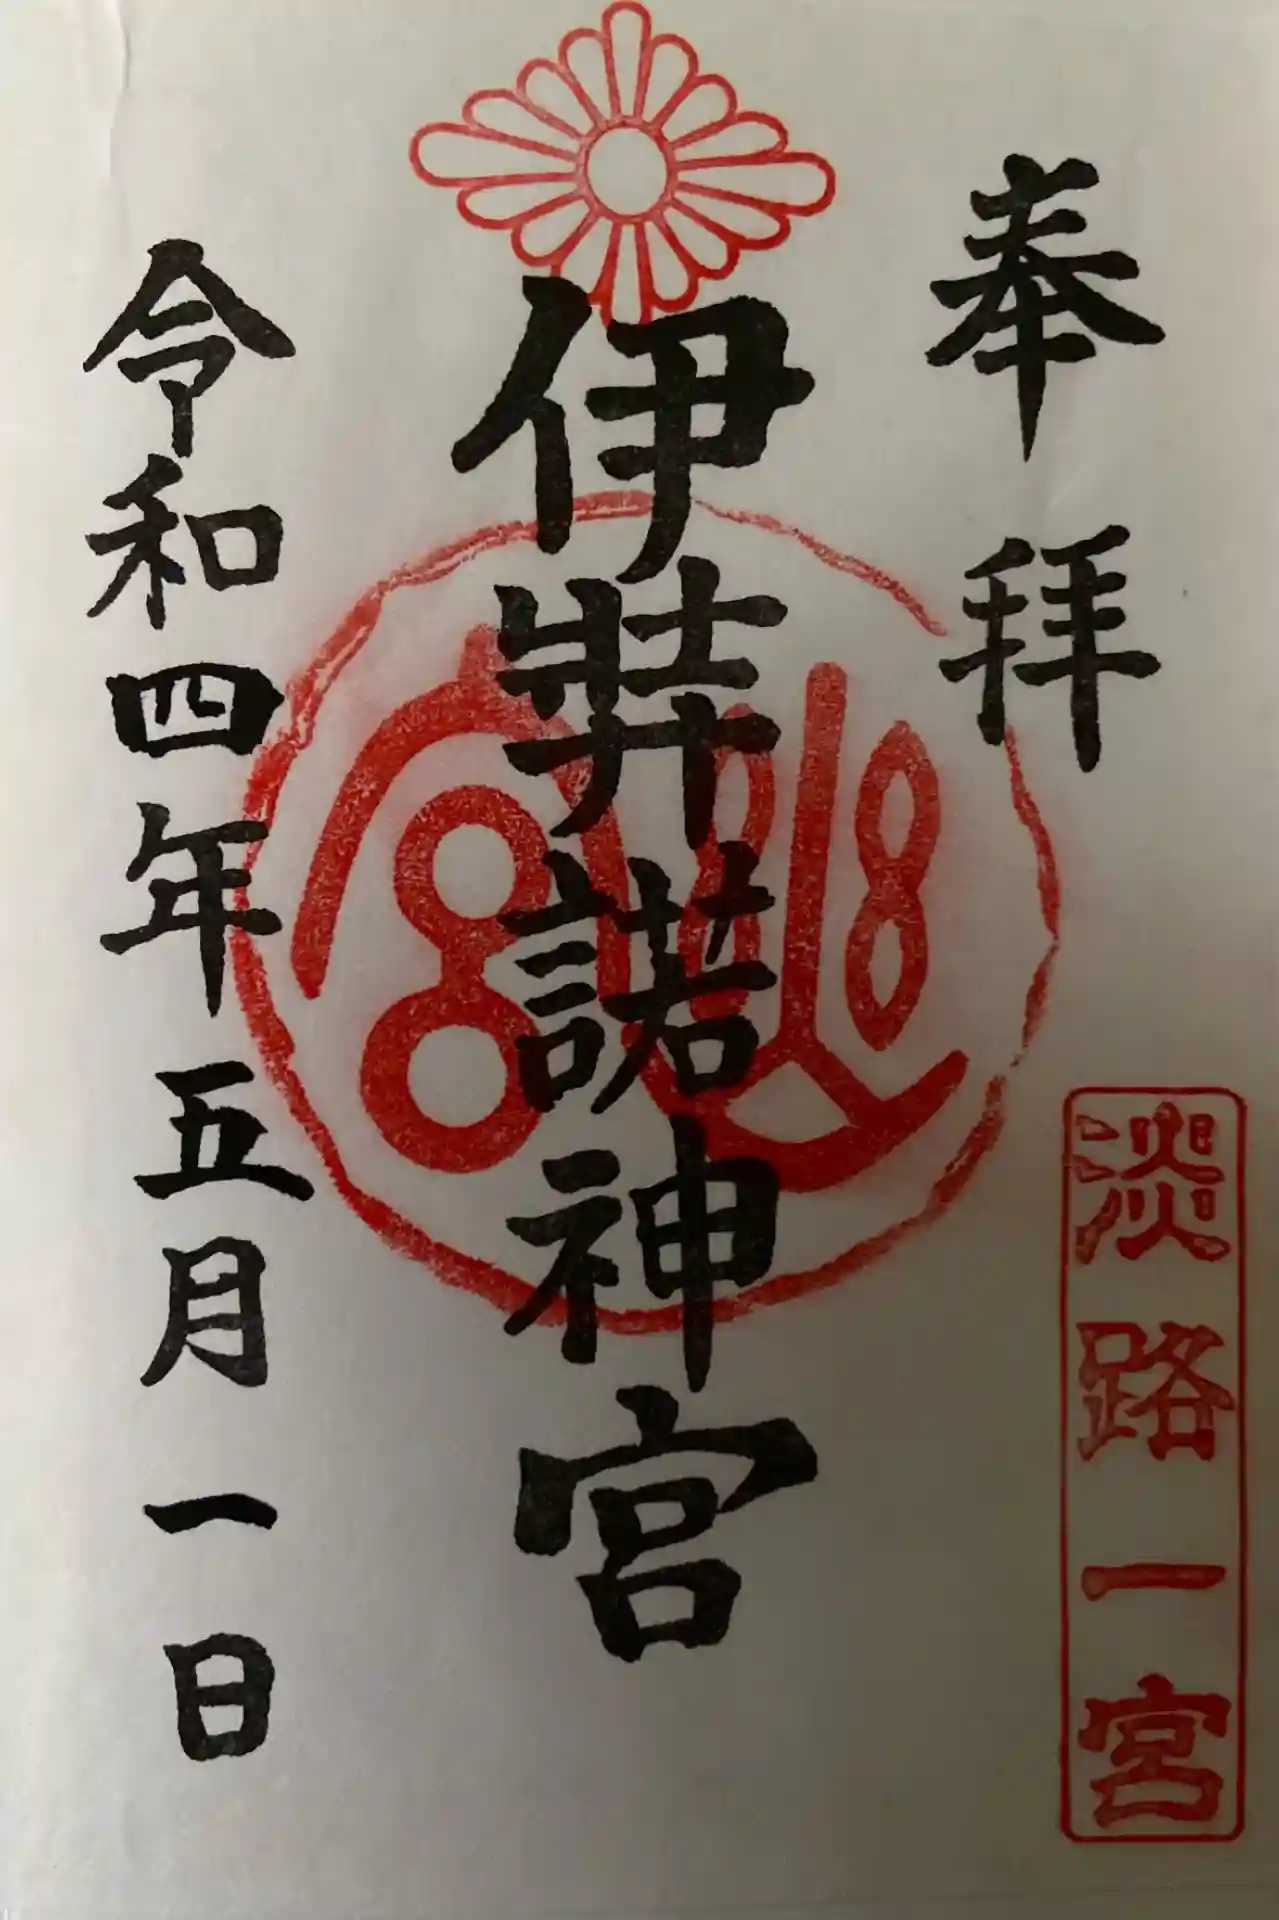 奉拝
淡路一宮
伊弉諾神宮
幽宮
令和四年五月一日